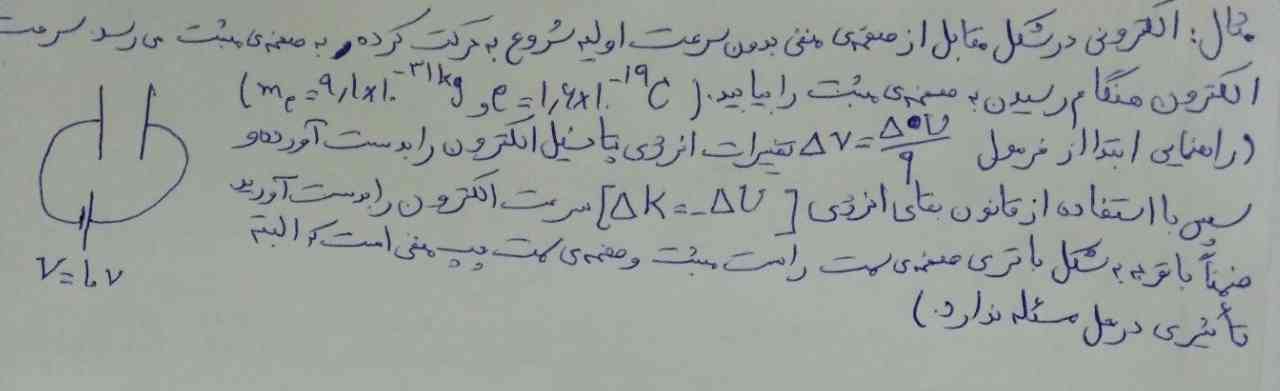 مثال: الکترونی در شکل مقابل از صفحه‌ی منفی بدون سرعت اولیه شروع به حرکت کرده و به صفحه‌ی مثبت می رسد. سرعت
الکترون هنگام رسیدن به صفحه‌ی مثبت را بیابید. (mₑ=۹٫۱×۱۰⁻³¹kg و e=۱٫۶×۱۰⁻¹⁹C)
(راهنمایی ابتدا از فرمول ΔV=ΔU/q تغییرات انرژی پتانسیل الکترون را بدست آورده و
سپس با استفاده از قانون بقای انرژی [ΔK=-ΔU] سرعت الکترون را بدست آورید
ضمناً با توجه به شکل باتری صفحه‌ی سمت راست مثبت و صفحه‌ی سمت چپ منفی است که البته
تأثیری در حل مسئله ندارد.)
V=۱۰v